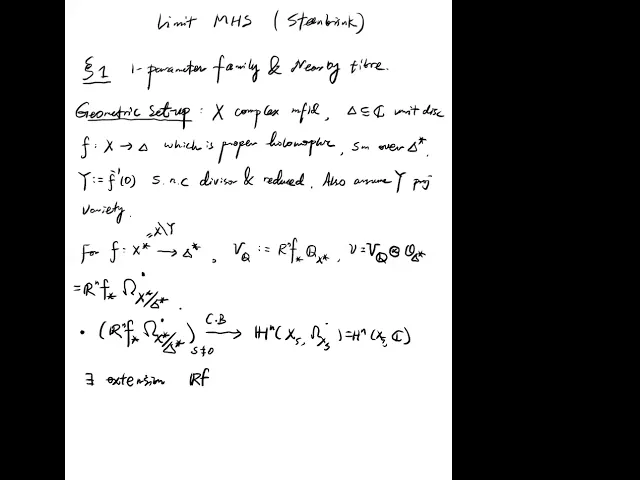 Limit MHS (Steenbrink)
§1 1-parameter family & Nearby fibre.
Geometric Set-up : X complex mfld, Δ⊆ℂ unit disc
f : X → Δ which is proper holomorphic, sm over Δ*.
Y := f⁻¹(0) s.n.c divisor & reduced. Also assume Y proj
variety.
For f: X* = X\Y → Δ*, V_ℚ := Rⁿf_* ℚ_{X*}, V = V_ℚ ⊗ O_{Δ*}
= ℝⁿf_* Ω^•_{X*/Δ*}.
• (ℝⁿf_* Ω^•_{X*/Δ*})_{s≠0} —C.B→ ℍⁿ(X_s, Ω^•_{X_s}) = Hⁿ(X_s, ℂ)
∃ extension ℝf